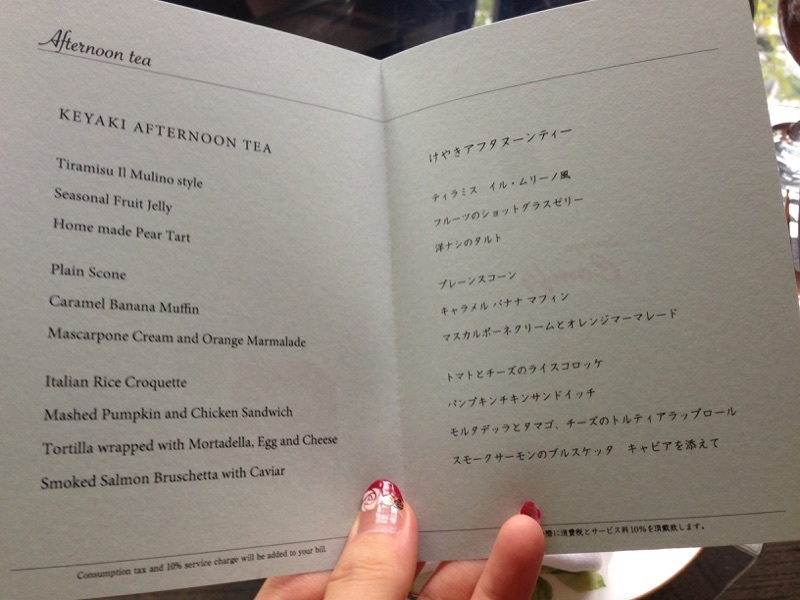 Afternoon tea
KEYAKI AFTERNOON TEA
Tiramisu Il Mulino style
Seasonal Fruit Jelly
Home made Pear Tart
Plain Scone
Caramel Banana Muffin
Mascarpone Cream and Orange Marmalade
Italian Rice Croquette
Mashed Pumpkin and Chicken Sandwich
Tortilla wrapped with Mortadella, Egg and Cheese
Smoked Salmon Bruschetta with Caviar
Consumption tax and 10% service charge will be added to your bill.
けやきアフタヌーンティー
ティラミス イル・ムリーノ風
フルーツのショットグラスゼリー
洋ナシのタルト
プレーンスコーン
キャラメル バナナ マフィン
マスカルポーネクリームとオレンジマーマレード
トマトとチーズのライスコロッケ
パンプキンチキンサンドイッチ
モルタデッラとタマゴ、チーズのトルティアラップロール
スモークサーモンのブルスケッタ キャビアを添えて
に消費税とサービス料10%を頂戴致します。